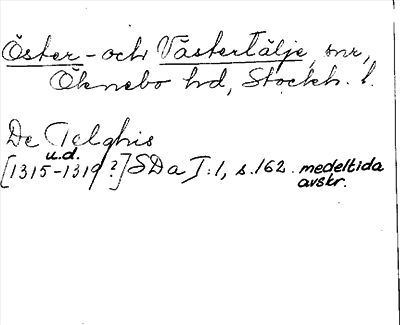 Öster- och Västertälje, snr,
Öknebo hd, Stockh. l.
De Telghis
u.d.
[1315-1319?] SDa I:1, s.162. medeltida
avskr.